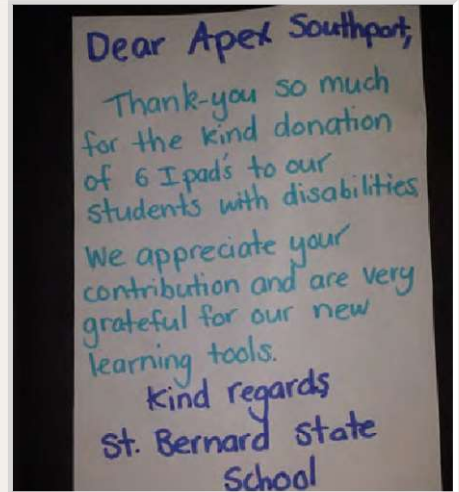 Dear Apex Southport,
Thank-you so much
for the kind donation
of 6 Ipad's to our
students with disabilities
We appreciate your
contribution and are very
grateful for our new
learning tools.
kind regards
St. Bernard state
School